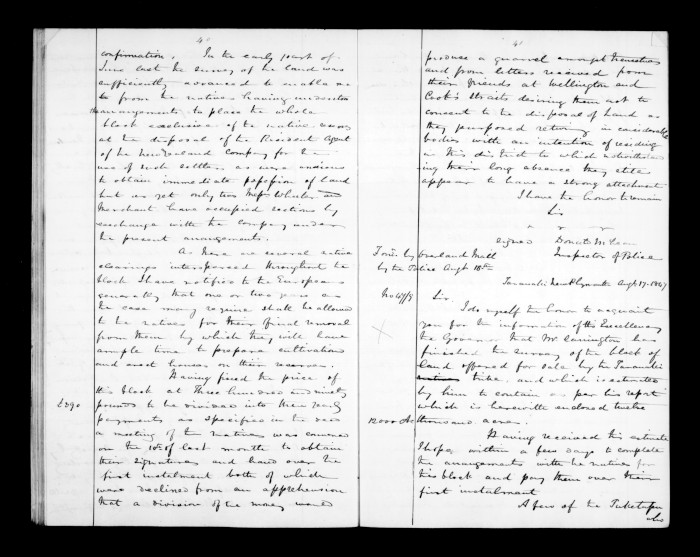 4
confirmation. In the early part of
June last the survey of the land was
sufficiently advanced to enable me
from the natives having
arrangements to place the whole
block exclusive of the native
at the disposal of the Resident Agent
of the New Zealand Company for the
use of such settlers as were anxious
to obtain immediate possession of land
but as yet only two Messrs Wheeler and
Merchant have occupied sections by
exchange with the Company under
the present arrangements.
As there are several native
clearings interspersed throughout the
block I have notified to the Europeans
generally that one or two years as
the case may require shall be allowed
to the natives for their final removal
from them by which they will have
ample time to prepare cultivations
and erect houses on their reserves.
Having fixed the price of
£390
this block at Three hundred and ninety
pounds to be divided into three yearly
payments as specified in the deed
a meeting of the natives was convened
on the of last month to obtain
their signatures and hand over the
first instalment both of which
were declined from an apprehension
that a division of the money would
4
produce a quarrel amongst themselves
and from letters received from
their friends at Wellington and
Cook's Straits desiring them not to
consent to the disposal of land as
they purposed returning in considerable
bodies with an intention of residing
in this district to which notwithstand
ing their long absence they still
appear to have a strong attachment
I have the honor to remain
Sir
signed Donald McLean
Inspector of Police
by overland Mail
by the Police Augt 18th
Taranaki New Plymouth Augt 17. 1847
No 47/8 Sir.
I do myself the honor to acquaint
you for the information of His Excellency
the Governor that Mr Carrington has
finished the survey of the block of
land offered for sale by the Taranaki
tribe, and which is estimated
by him to contain as per his report
which is herewith enclosed twelve
12000 Ac thousand acres.
Having received this estimate
I hope within a few days to complete
the arrangements with the natives for
this block and pay them over their
first instalment
A few of the Puketapu
who